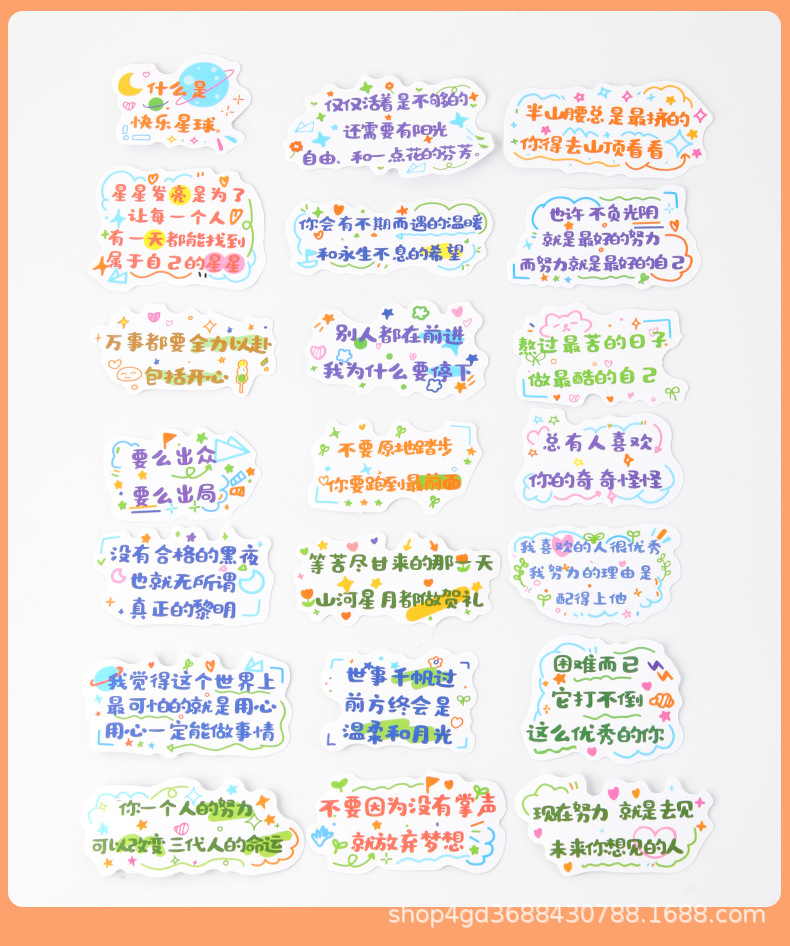 什么是
快乐星球
仅仅活着是不够的
还需要有阳光
自由、和一点花的芬芳。
半山腰总是最挤的
你得去山顶看看
星星发亮是为了
让每一个人
有一天都能找到
属于自己的星星
你会有不期而遇的温暖
和永生不息的希望
也许不负光阴
就是最好的努力
而努力就是最好的自己
万事都要全力以赴
包括开心
别人都在前进
我为什么要停下
熬过最苦的日子
做最酷的自己
要么出众
要么出局
不要原地踏步
你要跑到最前面
总有人喜欢
你的奇奇怪怪
没有合格的黑夜
也就无所谓
真正的黎明
等苦尽甘来的那一天
山河星月都做贺礼
我喜欢的人很优秀
我努力的理由是
配得上他
我觉得这个世界上
最可怕的就是用心
用心一定能做事情
世事千帆过
前方终会是
温柔和月光
困难而已
它打不倒
这么优秀的你
你一个人的努力
可以改变三代人的命运
不要因为没有掌声
就放弃梦想
现在努力 就是去见
未来你想见的人
shop4gd3688430788.1688.com